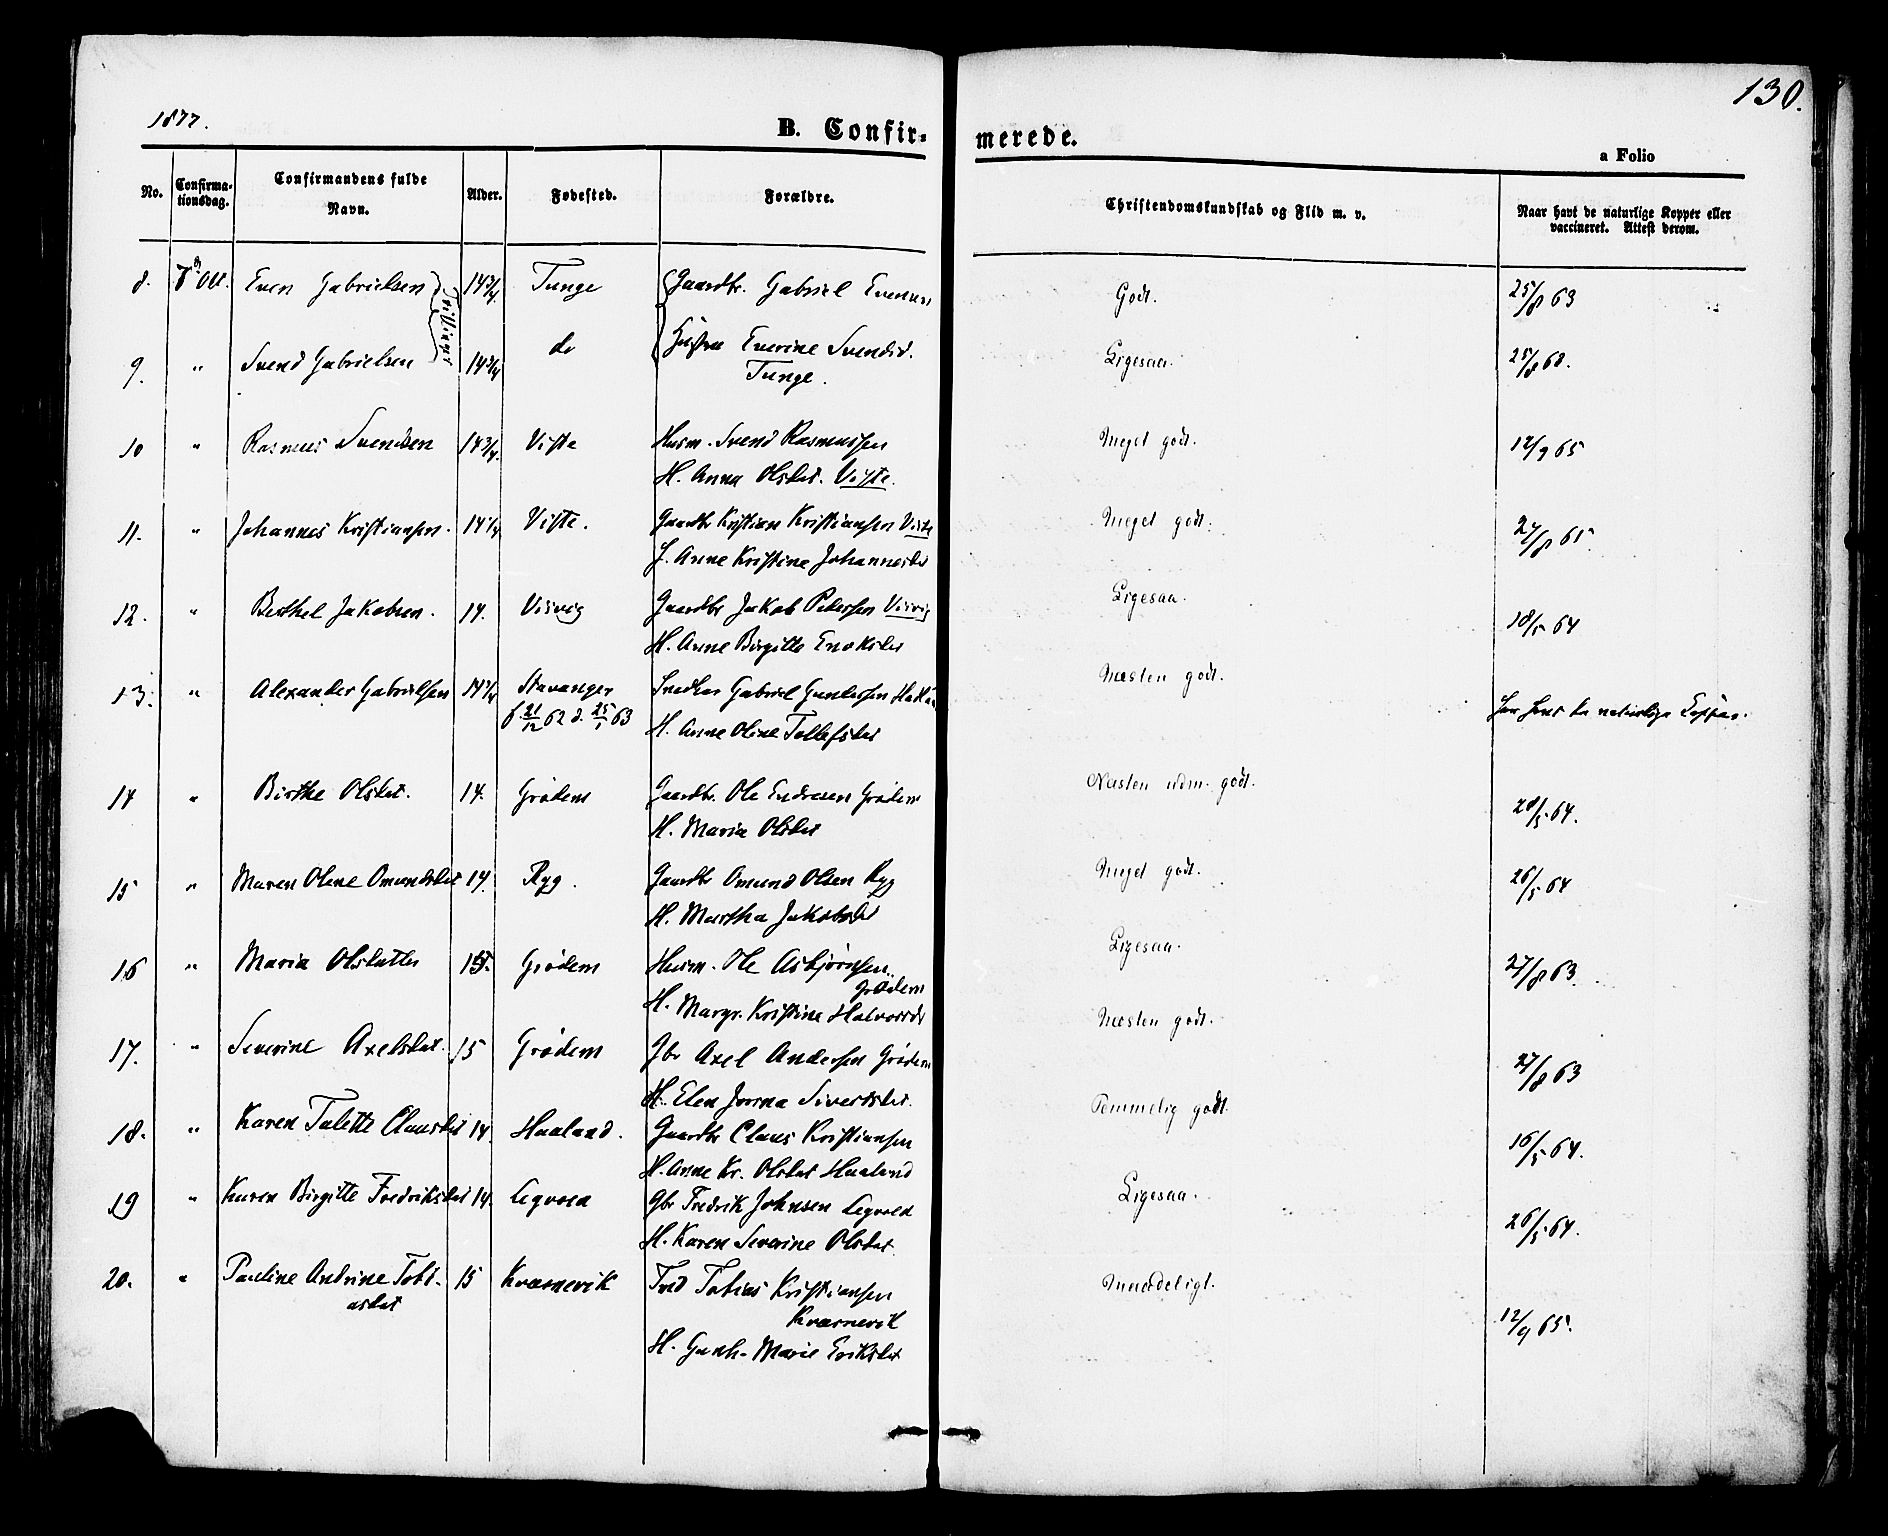 1877.
130.
B. Confir-
merede.
a Folio
No.
Confirma-
tionsdag.
Confirmandens fulde
Navn.
Alder.
Fødested.
Forældre.
Christendomskundskab og Flid m. v.
Naar havt de naturlige Kopper eller
vaccineret. Attest derom.
8. 7 Okt. Even Gabrielsen 14 3/4. Tunge Gaardbr. Gabriel Evensen Godt. 25/8 63
Tvillinger
9. " Svend Gabrielsen 14 3/4 do Hustru Everine Svendsd. Ligesaa. 25/8 63.
Tunge.
10 " Rasmus Svendsen 14 3/4. Viste Husm. Svend Rasmussen Meget godt. 12/9 65
H. Anna Olsdat. Viste.
11. " Johannes Kristiansen. 14 1/4 Viste. Gaardbr Kristian Kristiansen Viste Meget godt. 24/8 65.
H. Anne Kristine Johannesdat
12. " Berthel Jakobsen. 14. Visvig Gaardbr Jakob Petersen Visvig Ligesaa. 18/5 64
H. Anne Birgitte Enoksdat
13. " Alexander Gabrielsen 14 3/4 Stavanger Gabriel Gundersen Næsten godt. Har havt de naturlige Kopper.
f. 21/12 62 d. 25/1 63 H. Anne Oline Tollefsdat
14 " Birthe Olsdat. 14. Grødem Gaardbr. Ole Endresen Grødem Næsten udm. godt. 28/5 64.
H. Maria Olsdat
15 " Maren Olene Omundsdat 14. Ryg. Gaardbr Omund Olsen Ryg Meget godt. 26/5 64
H. Martha Jakobsdat
16 " Maria Olsdatter 15. Grødem Husm. Ole Asbjørnsen Ligesaa. 27/8 63.
Grødem
H. Margr. Kristine Halvorsdt
17. " Severine Axelsdat. 15 Grødem Gbr Axel Andersen Grødem Næsten godt. 27/8 63
H. Elen Jorina Sivertsdat.
18. " Karen Talette Clausdat 14. Haaland. Gaardbr Claus Kristiansen Temmelig godt. 16/5 64.
H. Anne Kr. Olsdat Haaland
19 " Karen Birgitte Fredriksdat 14. Legvold Gbr Fredrik Johnsen Legvold Ligesaa. 26/5 64.
H. Karen Severine Olsdat
20. " Pauline Andrine Tobi- 15 Kværnevik Tobias Kristiansen Maadeligt. 12/9 65.
asdat Kværnevik
H. Gunh. Marie Eriksdat